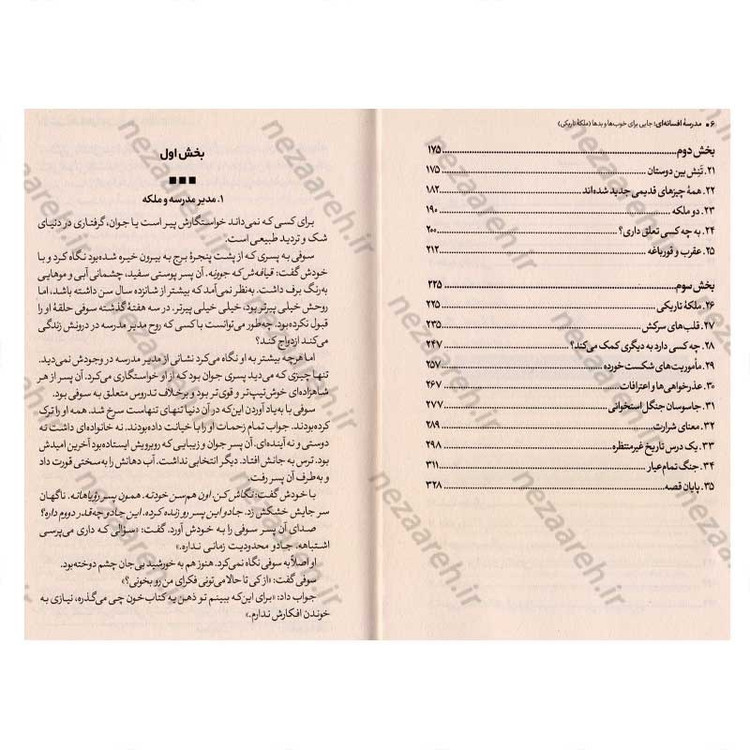 ۶ • مدرسهٔ افسانه‌ای؛ جایی برای خوب‌ها و بدها (ملکهٔ تاریکی)
بخش دوم ۱۷۵
۲۱. تنش بین دوستان ۱۷۵
۲۲. همهٔ چیزهای قدیمی جدید شده‌اند ۱۸۲
۲۳. دو ملکه ۱۹۰
۲۴. به چه کسی تعلق داری؟ ۲۰۰
۲۵. عقرب و قورباغه ۲۱۲
بخش سوم ۲۲۵
۲۶. ملکهٔ تاریکی ۲۲۵
۲۷. قلب‌های سرکش ۲۳۵
۲۸. چه کسی دارد به دیگری کمک می‌کند؟ ۲۴۷
۲۹. مأموریت‌های شکست خورده ۲۵۷
۳۰. عذرخواهی‌ها و اعترافات ۲۶۷
۳۱. جاسوسان جنگل استخوانی ۲۷۷
۳۲. معنای شرارت ۲۸۹
۳۳. یک درس تاریخ غیرمنتظره ۲۹۸
۳۴. جنگ تمام‌عیار ۳۱۱
۳۵. پایان قصه ۳۲۸
بخش اول
۱. مدیر مدرسه و ملکه
برای کسی که نمی‌داند خواستگارش پیر است یا جوان، گرفتاری در دنیای
شک و تردید طبیعی است.
سوفی به پسری که از پشت پنجرهٔ برج به بیرون خیره شده‌بود نگاه کرد و با
خودش گفت: قیافه‌ش که جوونه. آن پسر پوستی سفید، چشمانی آبی و موهایی
به‌رنگ برف داشت. به‌نظر نمی‌آمد که بیشتر از شانزده سال سن داشته باشد، اما
روحش خیلی پیرتر بود، خیلی خیلی پیرتر. در سه هفتهٔ گذشته سوفی حلقهٔ او را
قبول نکرده‌بود. چه‌طور می‌توانست با کسی که روح مدیر مدرسه در درونش زندگی
می‌کند ازدواج کند؟
اما هرچه بیشتر به او نگاه می‌کرد نشانی از مدیر مدرسه در وجودش نمی‌دید.
تنها چیزی که می‌دید پسری جوان بود که از او خواستگاری می‌کرد. آن پسر از هر
شاهزاده‌ای خوش‌تیپ‌تر و قوی‌تر بود و برخلاف تدروس متعلق به سوفی بود.
سوفی با به‌یاد آوردن این‌که در آن دنیا تنهای تنهاست سرخ شد. همه او را ترک
کرده‌بودند. جواب تمام زحمات او را با خیانت داده‌بودند. نه خانواده‌ای داشت نه
دوستی و نه آینده‌ای. آن پسر جوان و زیبایی که روبرویش ایستاده‌بود آخرین امیدش
بود. ترس به جانش افتاد. دیگر انتخابی نداشت. آب دهانش را به‌سختی قورت داد
و به‌طرف آن پسر رفت.
با خودش گفت: نگاش کن. اون هم‌سن خودته. همون پسر رؤیاهاته. ناگهان
سر جایش خشکش زد. جادو این پسر رو زنده کرده. این جادو چه‌قدر دووم داره؟
صدای آن پسر سوفی را به خودش آورد. گفت: «سؤالی که داری می‌پرسی
اشتباهه. جادو محدودیت زمانی نداره.»
او اصلاً به سوفی نگاه نمی‌کرد. هنوز هم به خورشید بی‌جان چشم دوخته‌بود.
سوفی گفت: «از کی تا حالا می‌تونی فکرای من رو بخونی؟»
جواب داد: «برای این‌که ببینم تو ذهن یه کتاب خون چی می‌گذره، نیازی به
خوندن افکارش ندارم.»
nezaareh.ir